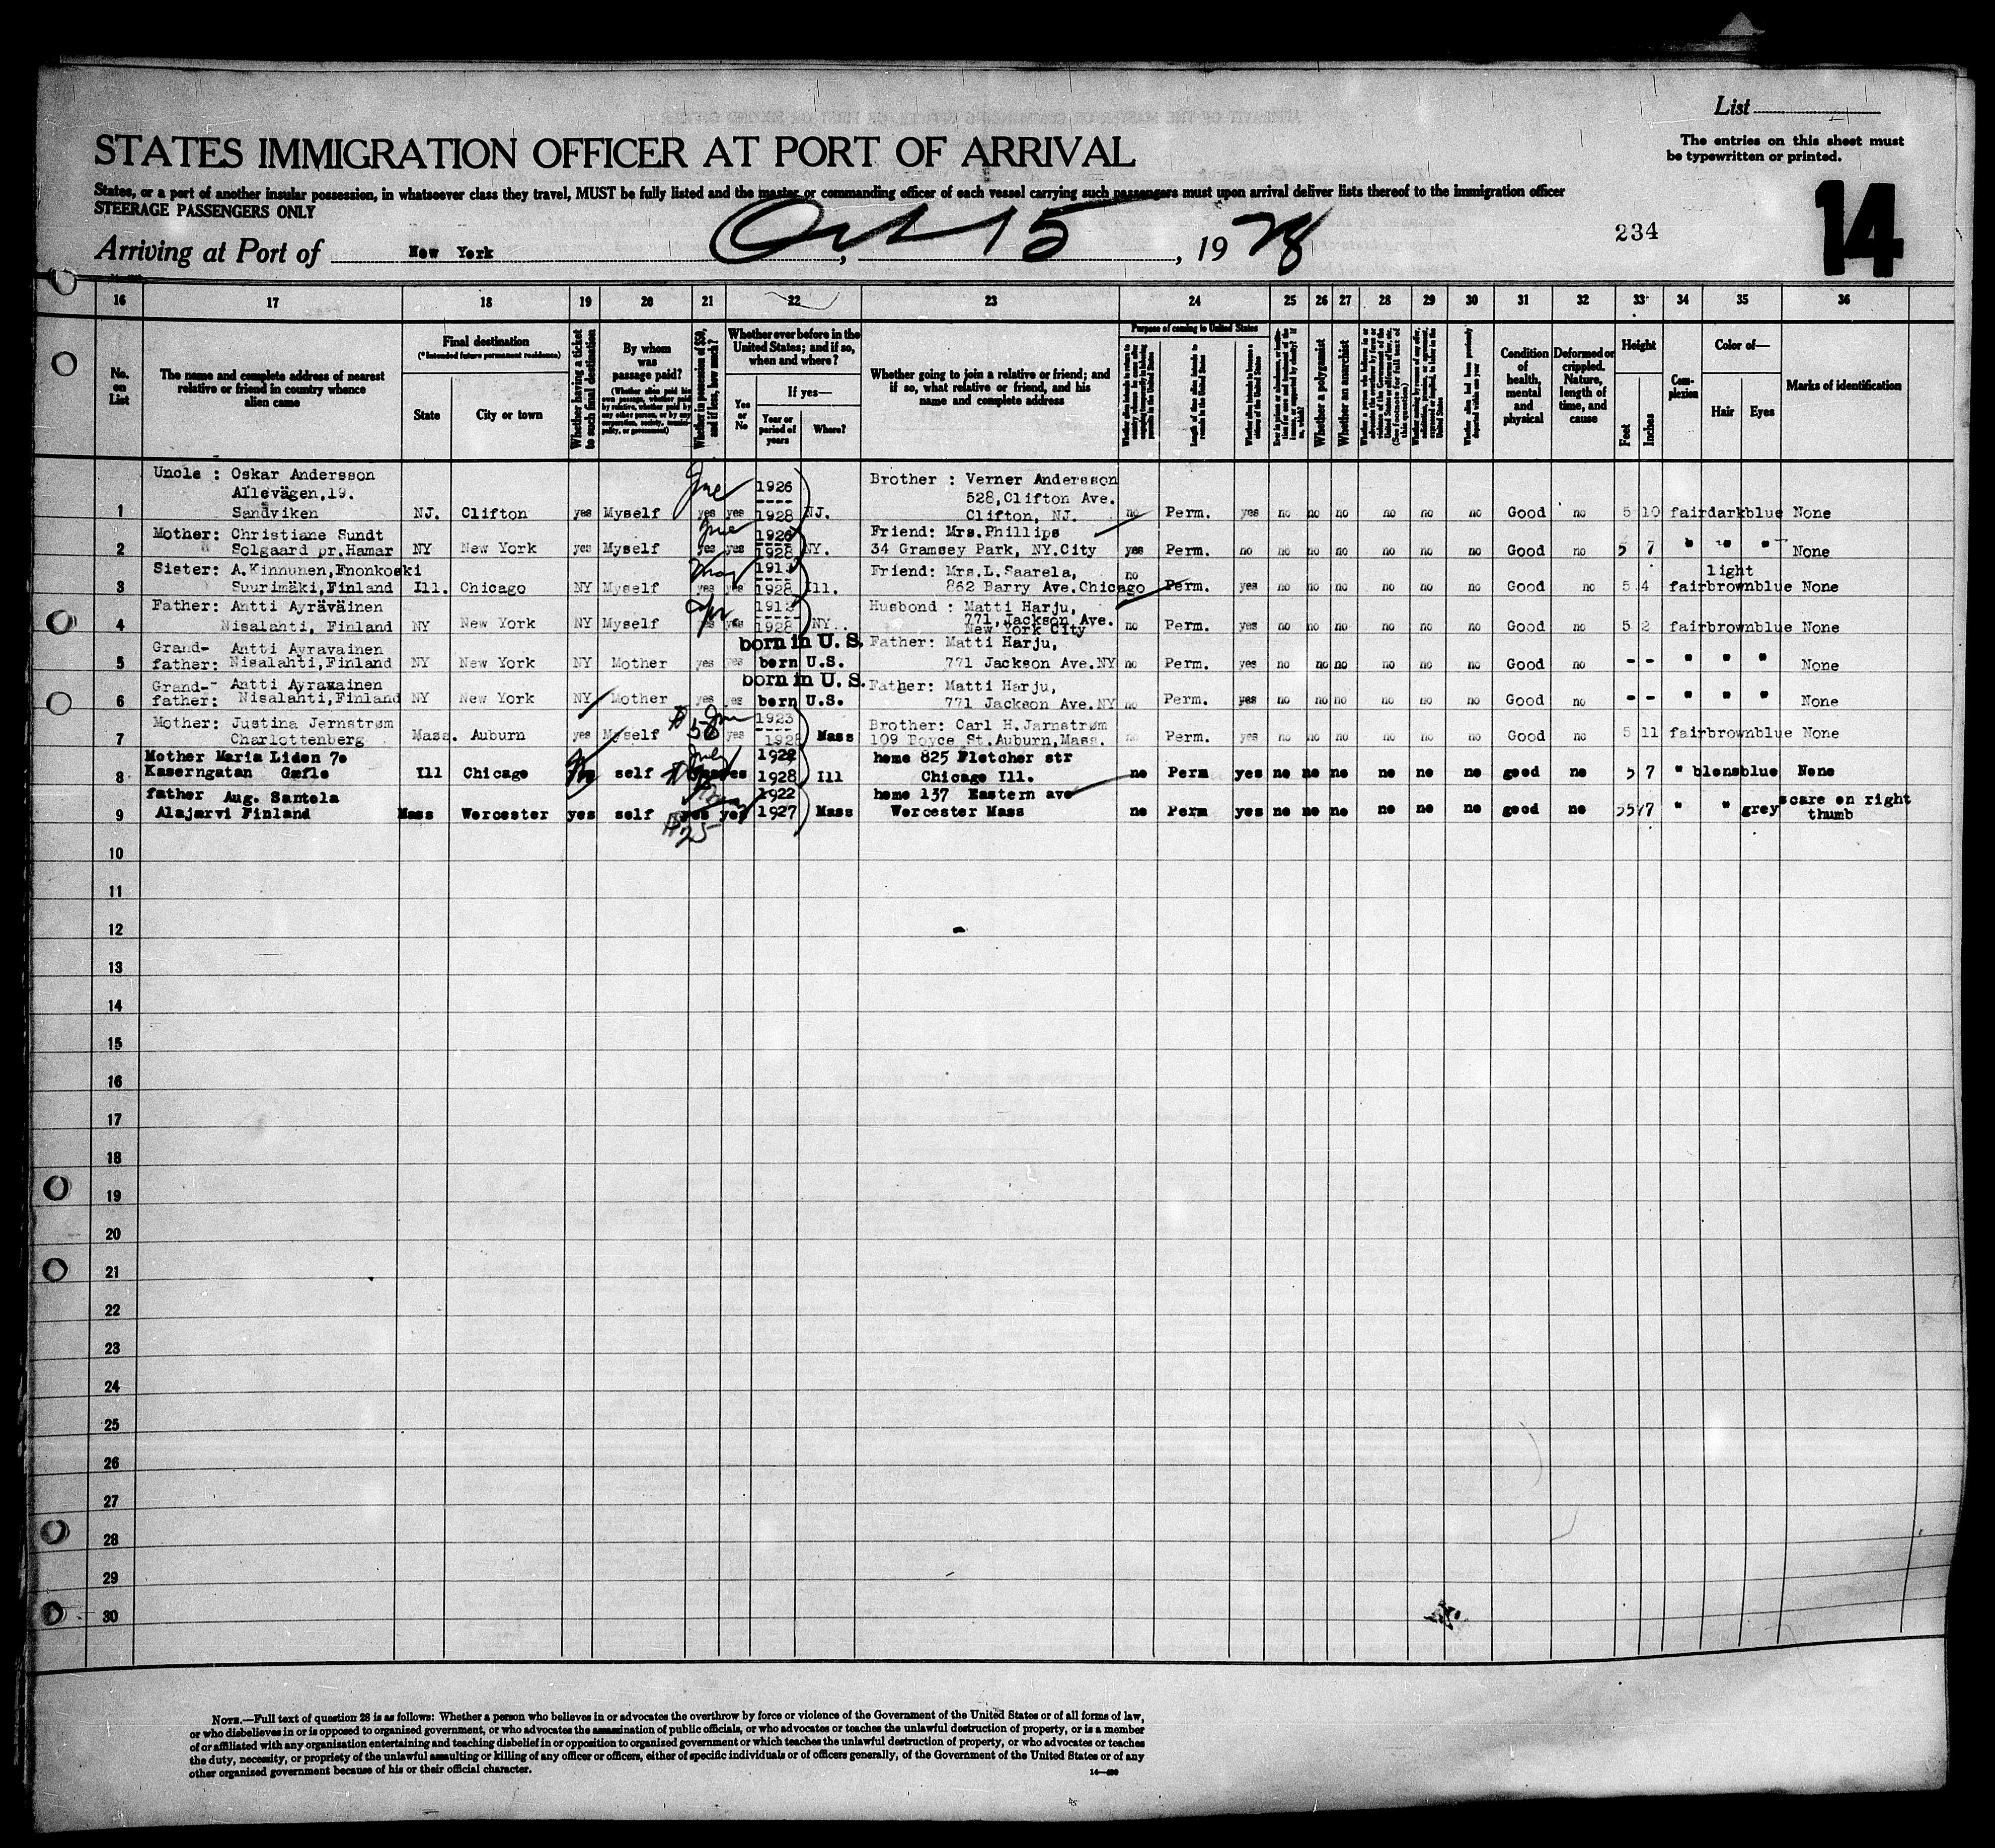 List
STATES IMMIGRATION OFFICER AT PORT OF ARRIVAL
The entries on this sheet must
be typewritten or printed.
States, or a port of another insular possession, in whatsoever class they travel, MUST be fully listed and the master or commanding officer of each vessel carrying such passengers must upon arrival deliver lists thereof to the immigration officer
STEERAGE PASSENGERS ONLY
14
234
Arriving at Port of New York, Oct 15, 1928
16 17 18 19 20 21 22 23 24 25 26 27 28 29 30 31 32 33 34 35 36
No. on List
The name and complete address of nearest relative or friend in country whence alien came
Final destination
(*Intended future permanent residence)
State
City or town
Whether having a ticket to such final destination
By whom was passage paid?
(Whether alien paid his own passage, whether paid by relative, whether paid by any other person, or by any corporation, society, municipality, or government)
Whether in possession of $50, and if less, how much?
Whether ever before in the United States; and if so, when and where?
Yes or No
If yes—
Year or period of years
Where?
Whether going to join a relative or friend; and if so, what relative or friend, and his name and complete address
Purpose of coming to United States
Length of time alien intends to remain in the United States
Whether alien intends to become a citizen of the United States
Whether a polygamist
Whether an anarchist
Condition of health, mental and physical
Deformed or crippled. Nature, length of time, and cause
Height
Feet
Inches
Complexion
Color of—
Hair
Eyes
Marks of identification
Uncle : Oskar Andersson
Allevägen,19.
Sandviken
1 NJ. Clifton yes Myself yes yes 1926 ---- 1928 NJ. Brother : Verner Andersson 528,Clifton Ave. Clifton, NJ. no Perm. yes no no no no no no Good no 5 10 fair dark blue None
Mother: Christiane Sundt
Solgaard pr.Hamar
2 NY New York yes Myself yes yes 1926 1928 NY. Friend: Mrs.Phillips 34 Gramsey Park, NY.City yes Perm. no no no no no no no Good no 5 7 " " " None
Sister: A.Kinnunen,Enonkoski
Suurimäki,Finland
3 Ill. Chicago NY Myself yes yes 1913 ---- 1928 Ill. Friend: Mrs.L.Saarela, 862 Barry Ave.Chicago no Perm. yes no no no no no no Good no 5 4 fair light brown blue None
Father: Antti Ayräväinen
Nisalahti, Finland
4 NY New York NY Myself yes yes 1912 ---- 1928 NY. Husbond : Matti Harju, 771, Jackson Ave. New York City no Perm. yes no no no no no no Good no 5 2 fair brown blue None
Grand- Antti Ayravainen
father: Nisalahti,Finland
5 NY New York NY Mother yes yes born in U. S. born U.S. Father: Matti Harju, 771 Jackson Ave.NY no Perm. yes no no no no no no Good no - - " " " None
Grand- Antti Ayravainen
father: Nisalahti,Finland
6 NY New York NY Mother yes yes born in U. S. born U.S. Father: Matti Harju, 771 Jackson Ave.NY no Perm. yes no no no no no no Good no - - " " " None
Mother: Justina Jernstrøm
Charlottenberg
7 Mass. Auburn yes Myself $50 yes 1923 1928 Mass Brother: Carl H.Jarnstrøm 109 Boyce St.Auburn,Mass. no Perm. yes no no no no no no Good no 5 11 fair brown blue None
Mother Maria Liden 7o
Kaserngatan Gefle
8 Ill Chicago self yes 1922 1928 Ill home 825 Fletcher str Chicago Ill. no Perm yes no no no no no no good no 5 7 " blens blue None
father Aug. Santola
Alajarvi Finland
9 Mass Worcester yes self yes yes $25 1922 1927 Mass home 137 Eastern ave Worcester Mass no Perm yes no no no no no no good no 5 7 " " grey scare on right thumb
10
11
12
13
14
15
16
17
18
19
20
21
22
23
24
25
26
27
28
29
30
NOTE.—Full text of question 28 is as follows: Whether a person who believes in or advocates the overthrow by force or violence of the Government of the United States or of all forms of law,
or who disbelieves in or is opposed to organized government, or who advocates the assassination of public officials, or who advocates or teaches the unlawful destruction of property, or is a member
of or affiliated with any organization entertaining and teaching disbelief in or opposition to organized government or which teaches the unlawful destruction of property, or who advocates or teaches
the duty, necessity, or propriety of the unlawful assaulting or killing of any officer or officers, either of specific individuals or of officers generally, of the Government of the United States or of any
other organized government because of his or their official character.